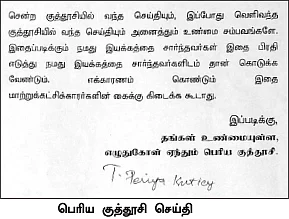 சென்ற குத்தூசியில் வந்த செய்தியும், இப்போது வெளிவந்த
குத்தூசியில் வந்த செய்தியும் அனைத்தும் உண்மை சம்பவங்களே.
இதைப்படிக்கும் நமது இயக்கத்தை சார்ந்தவர்கள் இதை பிரதி
எடுத்து நமது இயக்கத்தை சார்ந்தவர்களிடம் தான் கொடுக்க
வேண்டும். எக்காரணம் கொண்டும் இதை
மாற்றுக்கட்சிக்காரர்களின் கைக்கு கிடைக்க கூடாது.
இப்படிக்கு,
தங்கள் உண்மையுள்ள,
எழுதுகோள் ஏந்தும் பெரிய குத்தூசி.
T. Periya
பெரிய குத்தூசி செய்தி